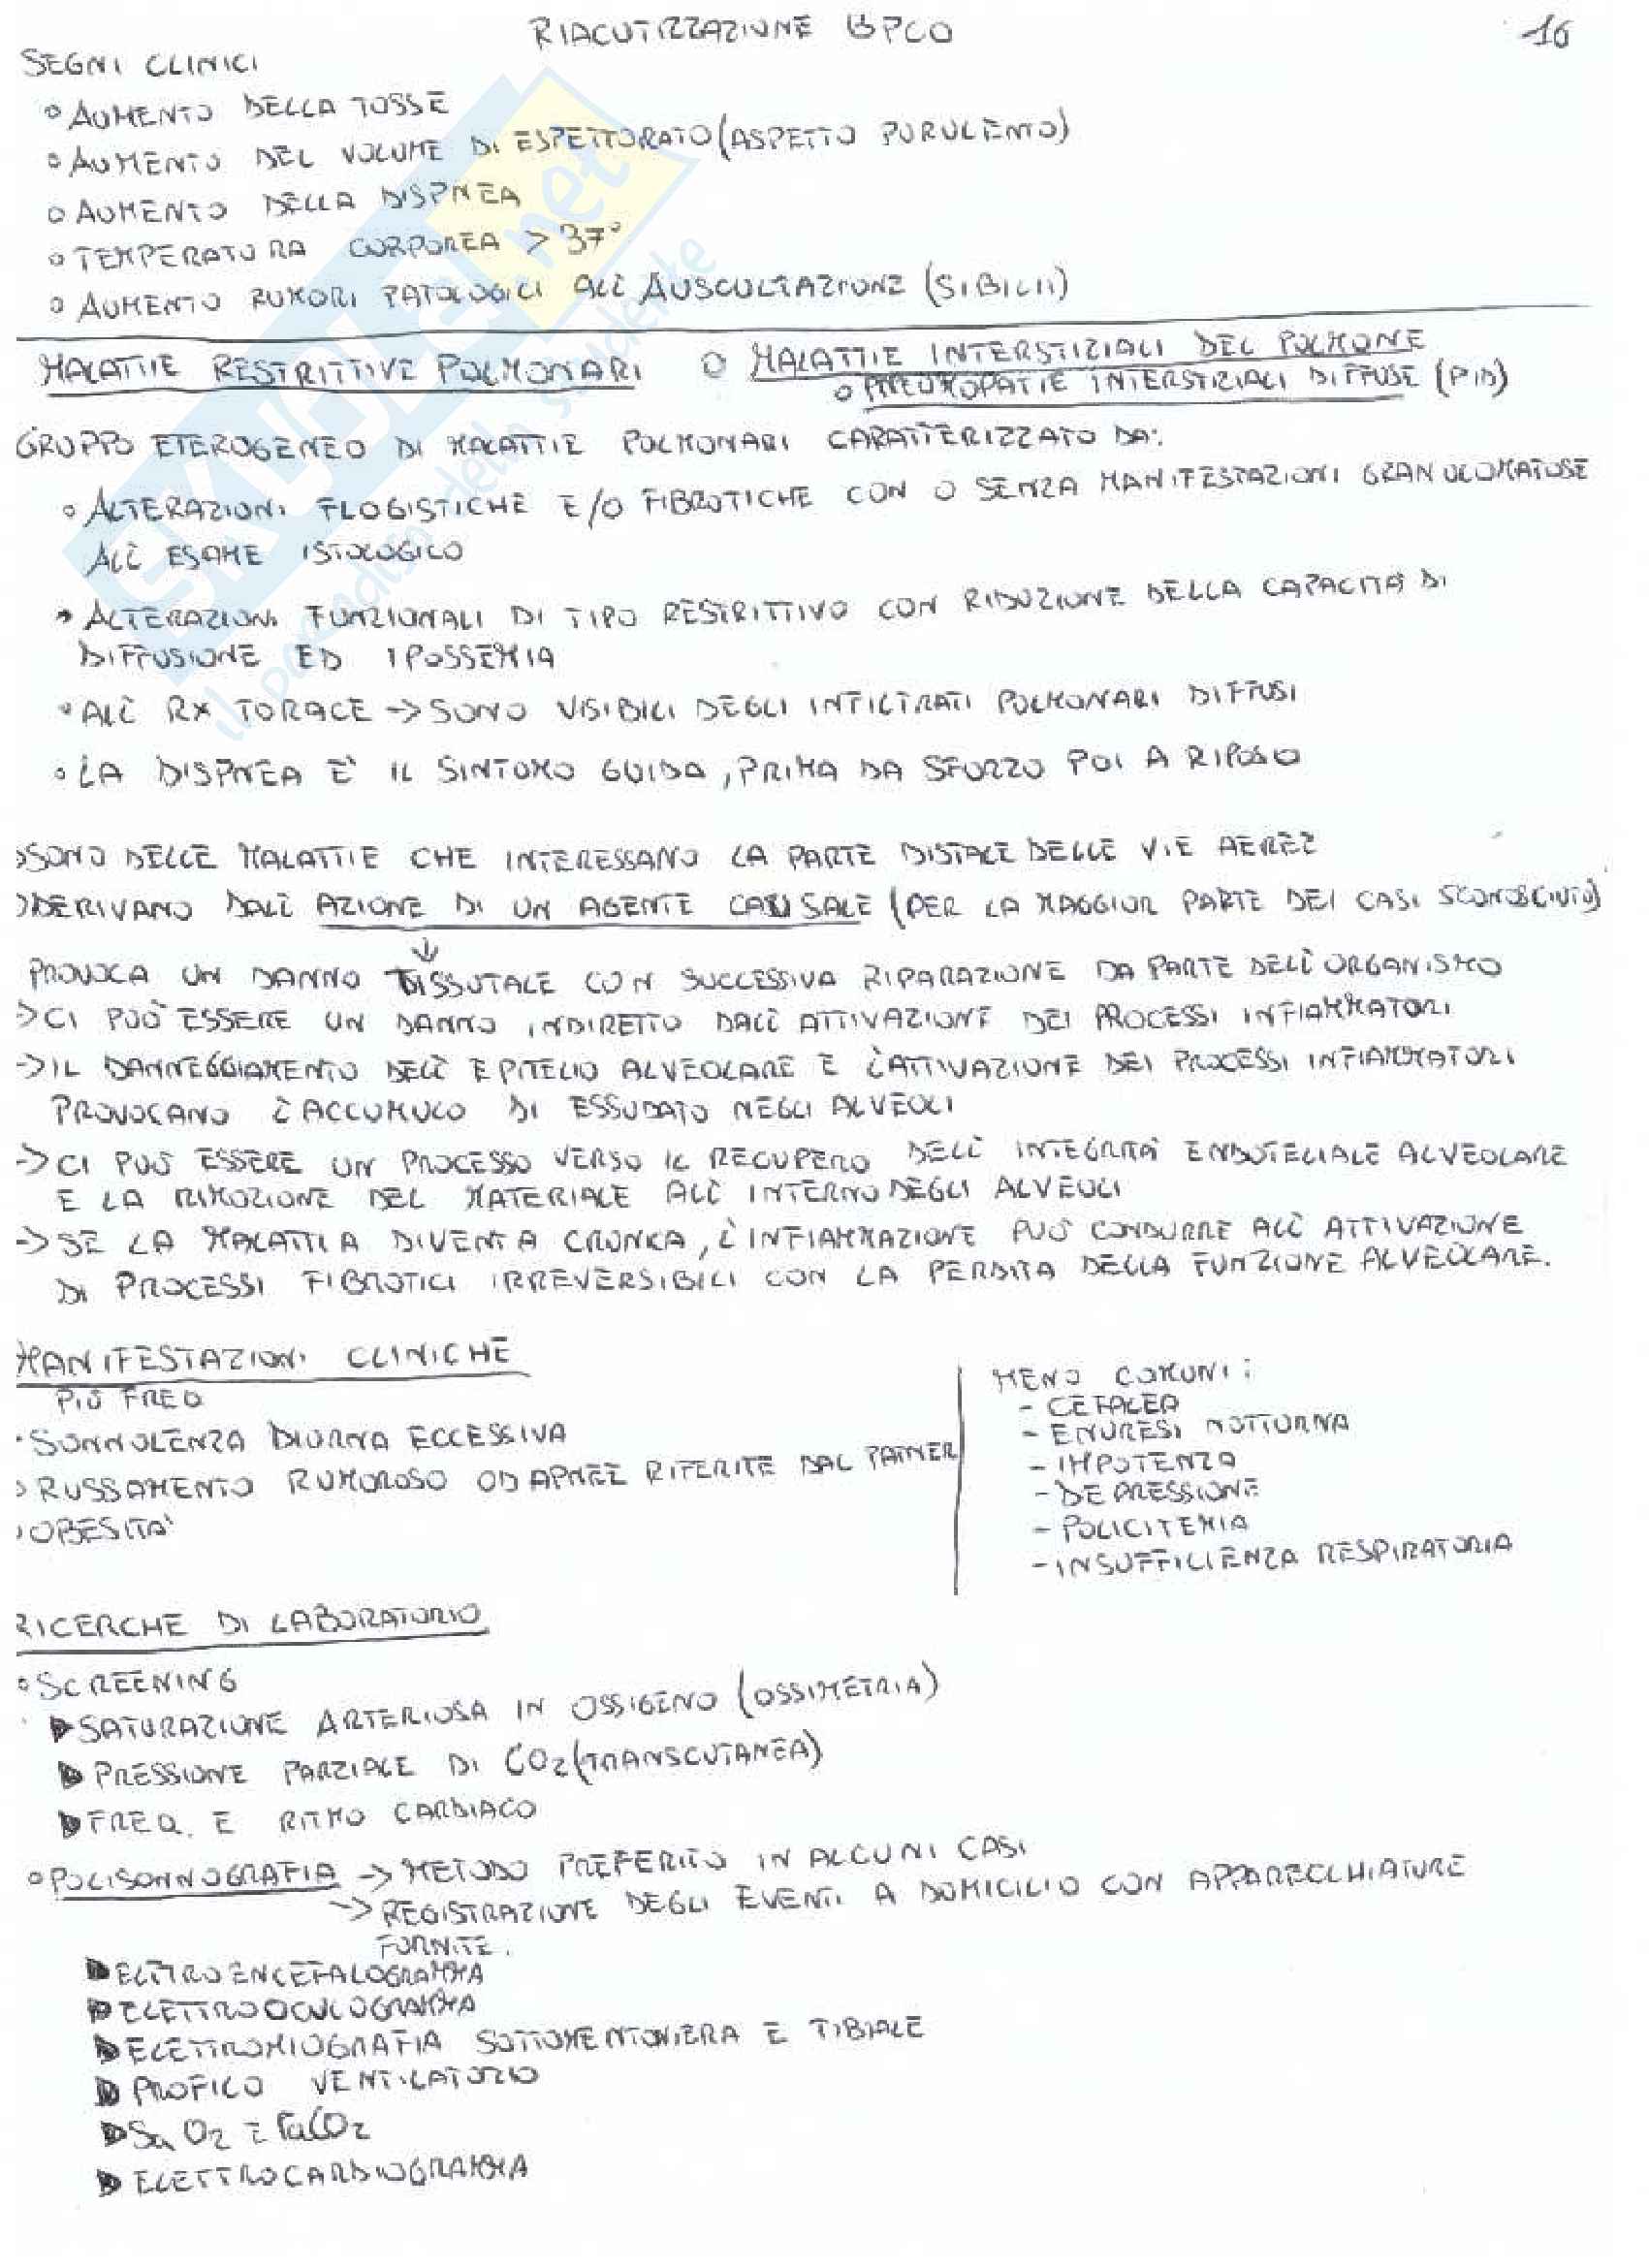 RIACUTIZZAZIONE BPCO
16
SEGNI CLINICI
° AUMENTO DELLA TOSSE
° AUMENTO DEL VOLUME DI ESPETTORATO (ASPETTO PURULENTO)
° AUMENTO DELLA DISPNEA
° TEMPERATURA CORPOREA > 37°
° AUMENTO RUMORI PATOLOGICI ALL' AUSCULTAZIONE (SIBILII)
MALATTIE RESTRITTIVE POLMONARI O MALATTIE INTERSTIZIALI DEL POLMONE
O PNEUMOPATIE INTERSTIZIALI DIFFUSE (PID)
GRUPPO ETEROGENEO DI MALATTIE POLMONARI CARATTERIZZATO DA:
° ALTERAZIONI FLOGISTICHE E/O FIBROTICHE CON O SENZA MANIFESTAZIONI GRANULOMATOSE
ALL' ESAME ISTOLOGICO
° ALTERAZIONI FUNZIONALI DI TIPO RESTRITTIVO CON RIDUZIONE DELLA CAPACITÀ DI
DIFFUSIONE ED IPOSSEMIA
° ALL' RX TORACE -> SONO VISIBILI DEGLI INFILTRATI POLMONARI DIFFUSI
° LA DISPNEA E' IL SINTOMO GUIDA, PRIMA DA SFORZO POI A RIPOSO
> SONO DELLE MALATTIE CHE INTERESSANO LA PARTE DISTALE DELLE VIE AEREE
> DERIVANO DALL' AZIONE DI UN AGENTE CAUSALE (PER LA MAGGIOR PARTE DEI CASI SCONOSCIUTO)
↓
PROVOCA UN DANNO TISSUTALE CON SUCCESSIVA RIPARAZIONE DA PARTE DELL' ORGANISMO
-> CI PUÒ ESSERE UN DANNO INDIRETTO DALL' ATTIVAZIONE DEI PROCESSI INFIAMMATORI
-> IL DANNEGGIAMENTO DELL' EPITELIO ALVEOLARE E L'ATTIVAZIONE DEI PROCESSI INFIAMMATORI
PROVOCANO L'ACCUMULO DI ESSUDATO NEGLI ALVEOLI
-> CI PUÒ ESSERE UN PROCESSO VERSO IL RECUPERO DELL' INTEGRITÀ ENDOTELIALE ALVEOLARE
E LA RIMOZIONE DEL MATERIALE ALL' INTERNO DEGLI ALVEOLI
-> SE LA MALATTIA DIVENTA CRONICA, L'INFIAMMAZIONE PUÒ CONDURRE ALL' ATTIVAZIONE
DI PROCESSI FIBROTICI IRREVERSIBILI CON LA PERDITA DELLA FUNZIONE ALVEOLARE.
MANIFESTAZIONI CLINICHE
PIÙ FREQ
° SONNOLENZA DIURNA ECCESSIVA
° RUSSAMENTO RUMOROSO OD APNEE RIFERITE DAL PATNER
° OBESITA'
MENO COMUNI:
- CEFALEA
- ENURESI NOTTURNA
- IMPOTENZA
- DEPRESSIONE
- POLICITEMIA
- INSUFFICIENZA RESPIRATORIA
RICERCHE DI LABORATORIO
° SCREENING
▶ SATURAZIONE ARTERIOSA IN OSSIGENO (OSSIMETRIA)
▶ PRESSIONE PARZIALE DI CO2 (TRANSCUTANEA)
▶ FREQ. E RITMO CARDIACO
° POLISONNOGRAFIA -> METODO PREFERITO IN ALCUNI CASI
-> REGISTRAZIONE DEGLI EVENTI A DOMICILIO CON APPARECCHIATURE
FORNITE.
▶ ELTTROENCEFALOGRAMMA
▶ ELETTROOCULOGRAMMA
▶ ELETTROMIOGRAFIA SOTTOMENTONIERA E TIBIALE
▶ PROFILO VENTILATORIO
▶ SaO2 E PaCO2
▶ ELETTROCARDIOGRAMMA
SKUOLA.net
il paradiso dello studente